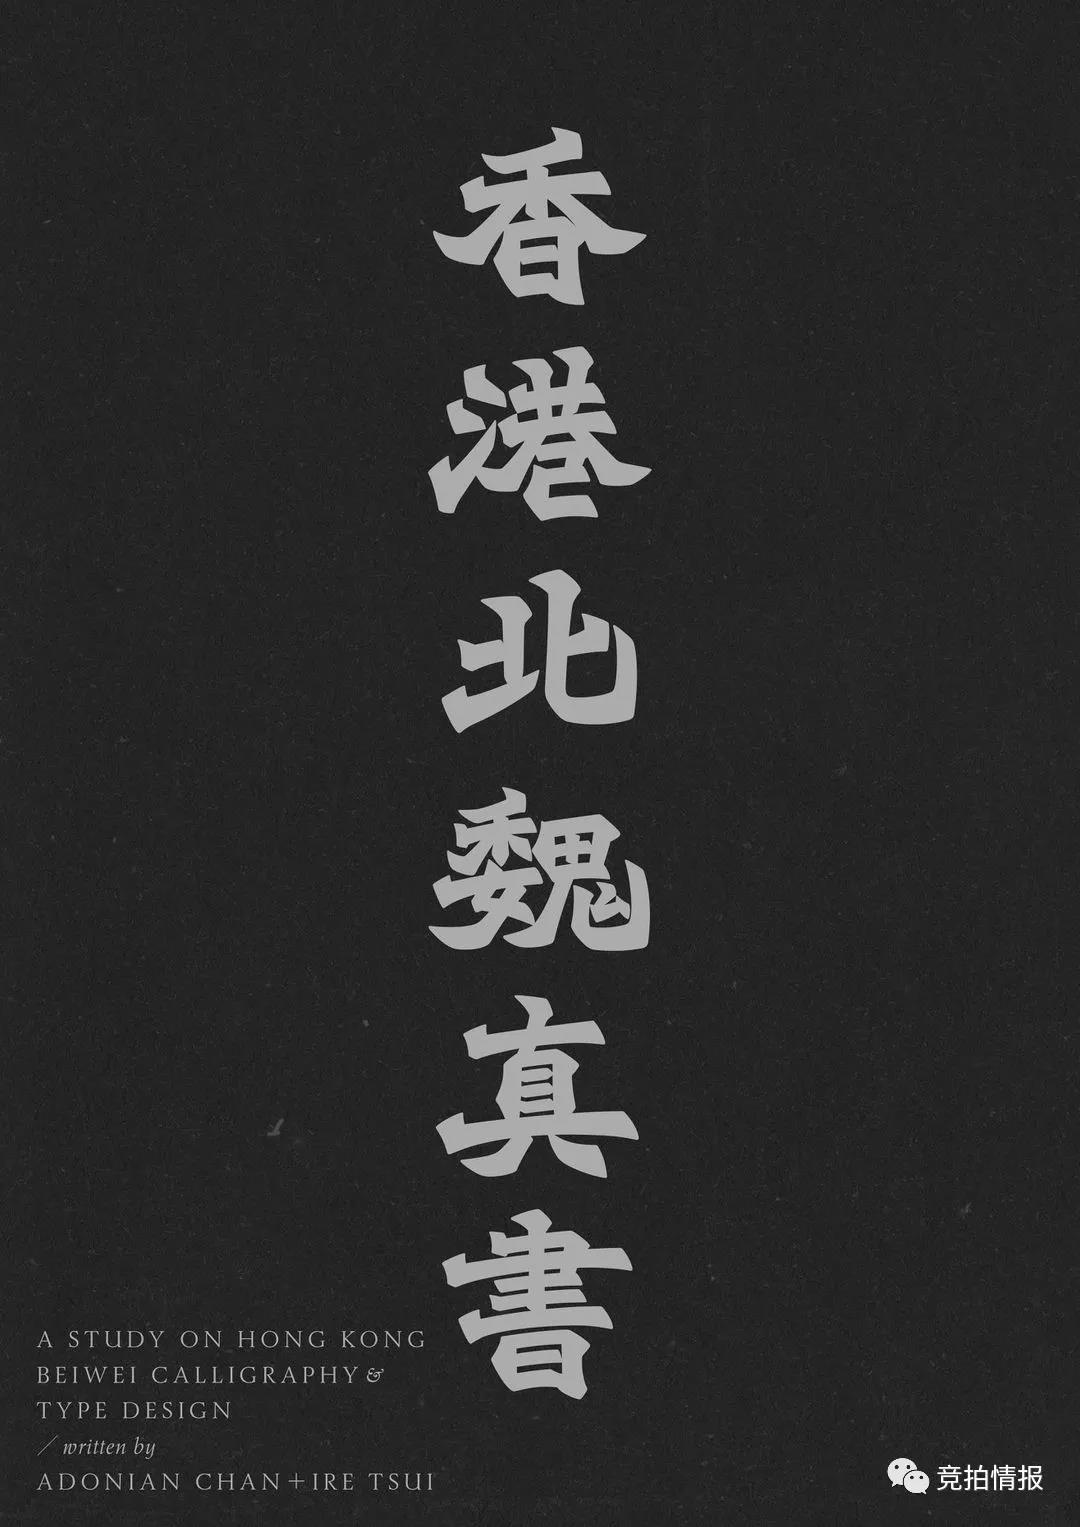 香港北魏真書
A STUDY ON HONG KONG
BEIWEI CALLIGRAPHY &
TYPE DESIGN
/ written by
ADONIAN CHAN+IRE TSUI
竞拍情报